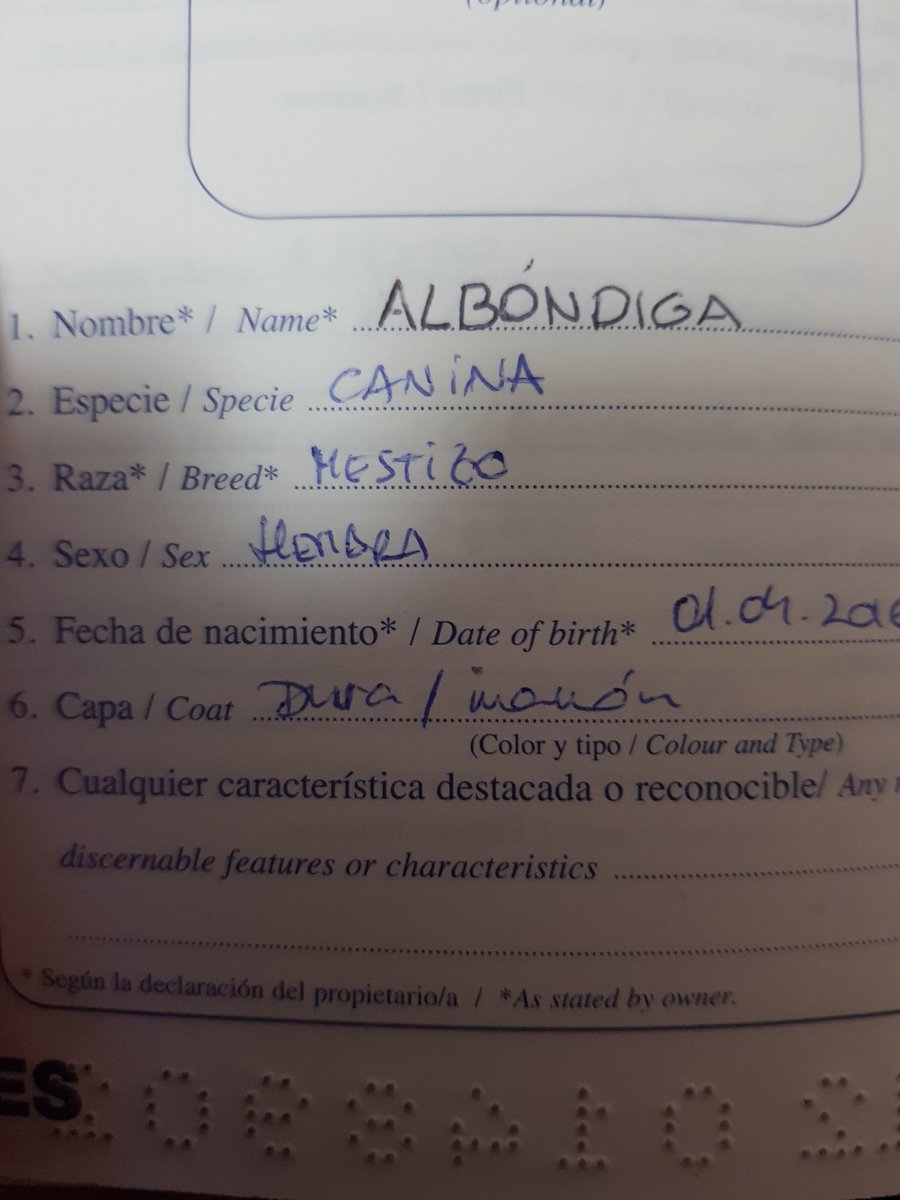 (optional)
1. Nombre* / Name* ALBÓNDIGA
2. Especie / Specie CANINA
3. Raza* / Breed* MESTIZO
4. Sexo / Sex HEMBRA
5. Fecha de nacimiento* / Date of birth* 01.04.201
6. Capa / Coat Dura / marrón
(Color y tipo / Colour and Type)
7. Cualquier característica destacada o reconocible/ Any
discernable features or characteristics
* Según la declaración del propietario/a / *As stated by owner.
ES